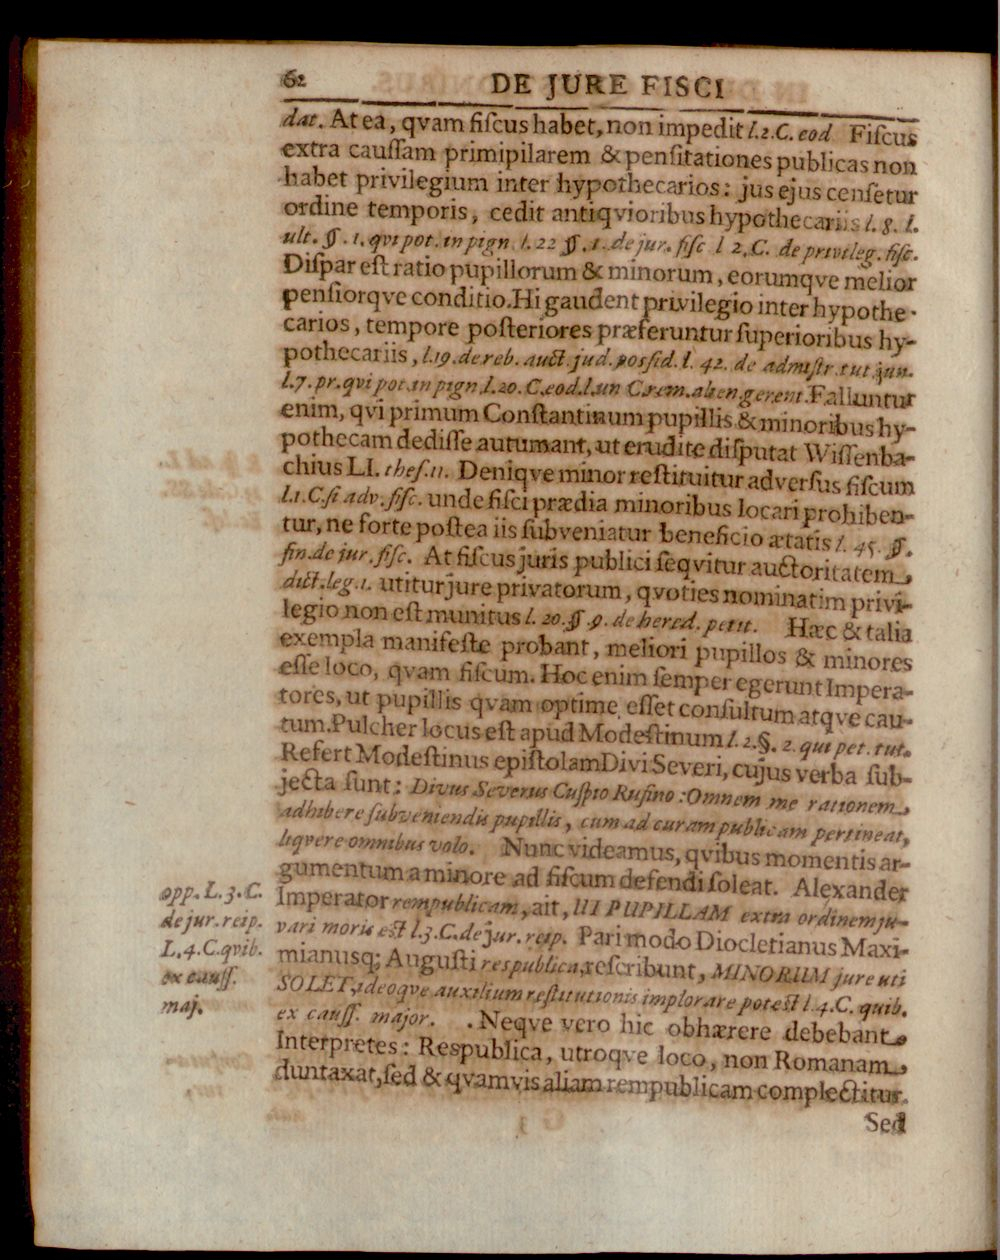 62 DE JURE FISCI
dat. At ea, qvam fiſcus habet, non impedit l. 2. C. eod Fiſcus
extra cauſſam primipilarem & penſitationes publicas non
habet privilegium inter hypothecarios: jus ejus cenſetur
ordine temporis, cedit antiqvioribus hypothecariis l. 8. l.
ult. §. 1. qvi pot. in pign l. 22 §. 1. de jur. fiſc l 2. C. de privileg. fiſc.
Diſpar eſt ratio pupillorum & minorum, eorumqve melior
penſiorqve conditio. Hi gaudent privilegio inter hypothe-
carios, tempore poſteriores præferuntur ſuperioribus hy-
pothecariis, l. 19. de reb. auct. jud. poſſid. l. 42. de admiſtr. tut. jun.
l. 7. pr. qvi pot. in pign. l. 20. C. eod. l. un C. rem. alien. gerent. Falluntur
enim, qvi primum Conſtantinum pupillis & minoribus hy-
pothecam dediſſe autumant, ut erudite diſputat Wiſſenba-
chius LI. theſ. 11. Deniqve minor reſtituitur adverſus fiſcum
l. 1. C. ſi adv. fiſc. unde fiſci prædia minoribus locari prohiben-
tur, ne forte poſtea iis ſubveniatur beneficio ætatis l. 45. §.
fin. de jur. fiſc. At fiſcus juris publici ſeqvitur auctoritatem,
dict. leg. 1. utitur jure privatorum, qvoties nominatim privi-
legio non eſt munitus l. 20. § 9. de hered. petit. Hæc & talia
exempla manifeſte probant, meliori pupillos & minores
eſſe loco, qvam fiſcum. Hoc enim ſemper egerunt Impera-
tores, ut pupillis qvam optime eſſet conſultum atqve cau-
tum. Pulcher locus eſt apud Modeſtinum l. 2. §. 2. qui pet. tut.
Refert Modeſtinus epiſtolam Divi Severi, cujus verba ſub-
jecta ſunt: Divus Severus Cuſpio Rufino: Omnem me rationem,
adhibere ſubveniendis pupillis, cum ad curam publicam pertineat,
liqvere omnibus volo. Nunc videamus, qvibus momentis ar-
gumentum a minore ad fiſcum defendi ſoleat. Alexander
Imperator rempublicam, ait, UI PUPILLAM extra ordinem ju-
vari moris eſt l. 3. C. de jur. reip. Pari modo Diocletianus Maxi-
mianusq; Auguſti respublica, reſcribunt, MINORUM jure uti
SOLET, ideoqve auxilium reſtitutionis implorare poteſt l. 4. C. quib.
ex cauſſ. major. . Neqve vero hic obhærere debebant
Interpretes: Respublica, utroqve loco, non Romanam,
duntaxat, ſed & qvamvis aliam rempublicam complectitur.
Sed
opp. L. 3. C.
de jur. reip.
L. 4. C. qvib.
ex cauſſ.
maj.